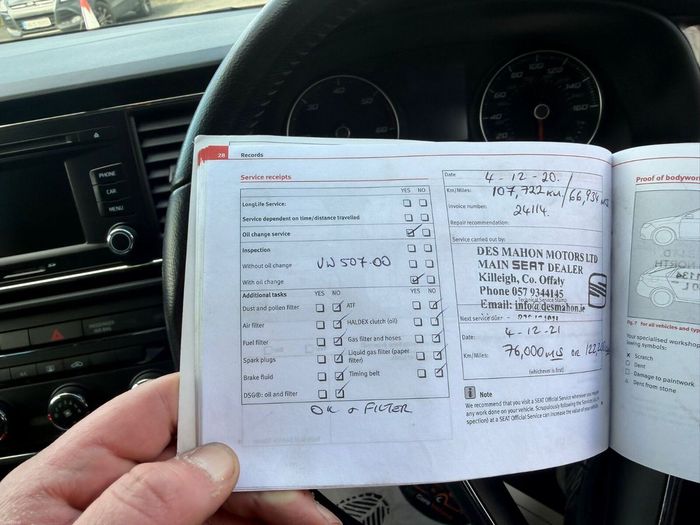 28 Records
Service receipts
YES NO
LongLife Service:
Service dependent on time/distance travelled
Oil change service
Inspection
Without oil change VW 507.00
With oil change
Additional tasks YES NO YES NO
Dust and pollen filter ATF
Air filter HALDEX clutch (oil)
Fuel filter Gas filter and hoses
Spark plugs Liquid gas filter (paper filter)
Brake fluid Timing belt
DSG®: oil and filter
OIL & FILTER
Date 4-12-20.
Km/Miles: 107,722 KM/66,934 MLS
Invoice number: 24114.
Repair recommendation:
Service carried out by:
DES MAHON MOTORS LTD
MAIN SEAT DEALER
Killeigh, Co. Offaly
Phone 057 9344145
Email: info@desmahon.ie
Next service due:
Date: 4-12-21
Km/Miles: 76,000 MLS or
(whichever is first)
Note
We recommend that you visit a SEAT Official Service whenever you require
any work done on your vehicle. Scrupulously following the Services
spection) at a SEAT Official Service can increase the value of your vehicle
Proof of bodywor
Fig. 7 for all vehicles and typ
Your specialised workshop
lowing symbols:
x Scratch
o Dent
Damage to paintwork
Dent from stone
PHONE
CAR
MENU